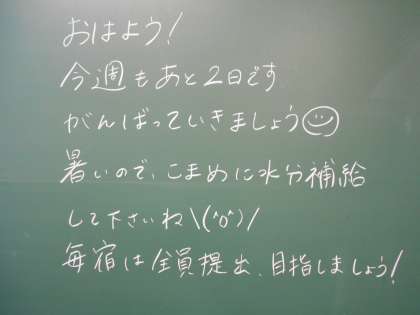 おはよう!
今週もあと2日です
がんばっていきましょう☺
暑いので、こまめに水分補給
して下さいね\(^o^)/
毎宿は全員提出、目指しましょう!